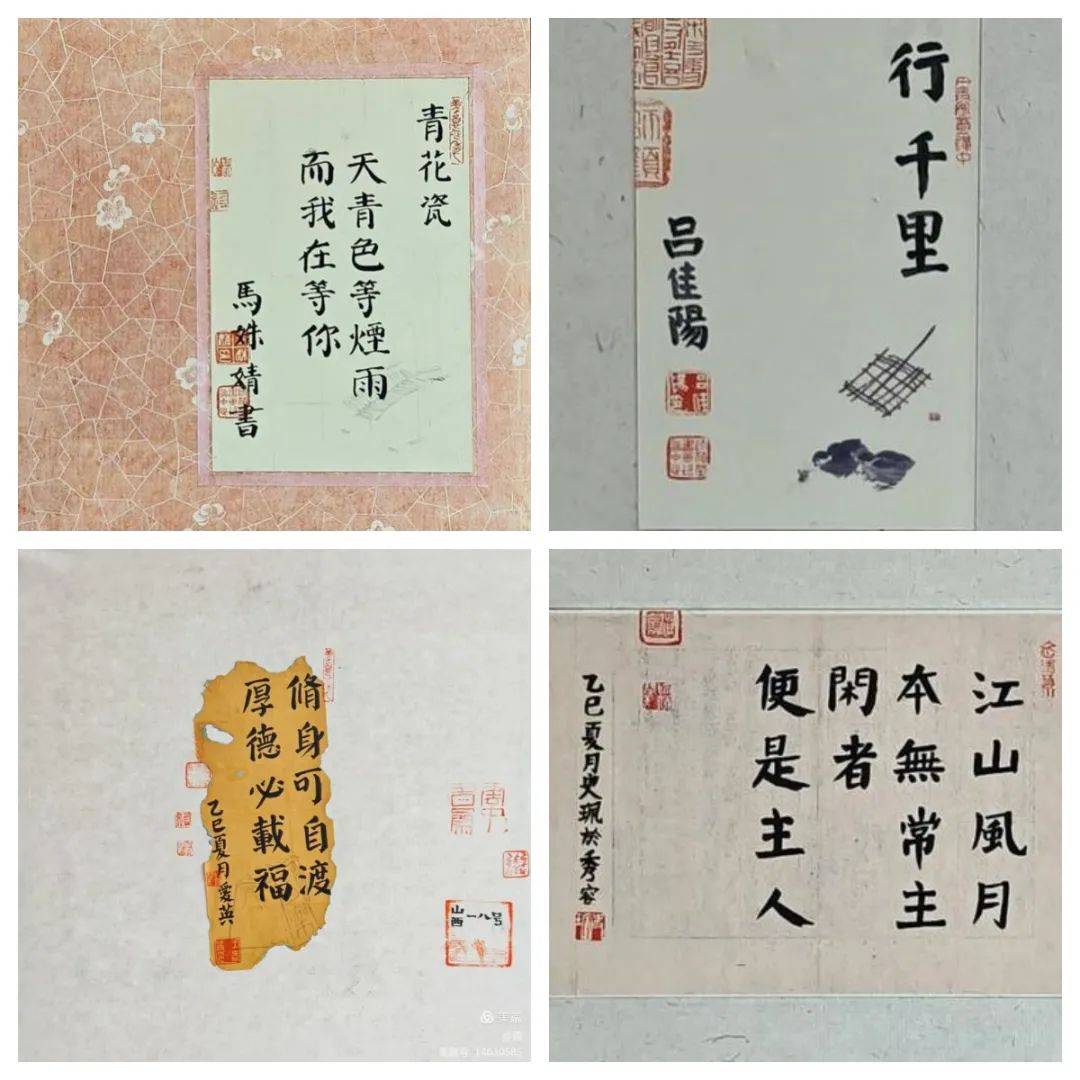 青花瓷
天青色等煙雨
而我在等你
馬姝婧書
行千里
吕佳陽
脩身可自渡
厚德必載福
乙巳夏月愛英
山西一八号
江山風月
本無常主
閑者
便是主人
乙巳夏月史珮於秀容